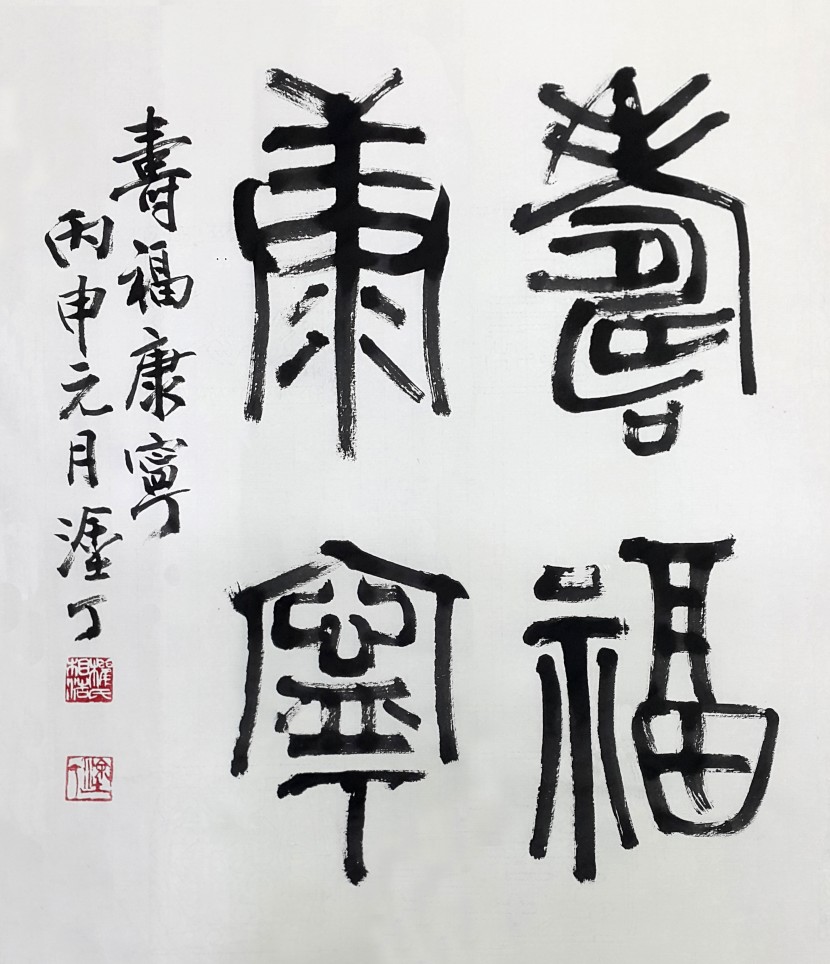 壽福
康寧
壽福康寧
丙申元月 丁